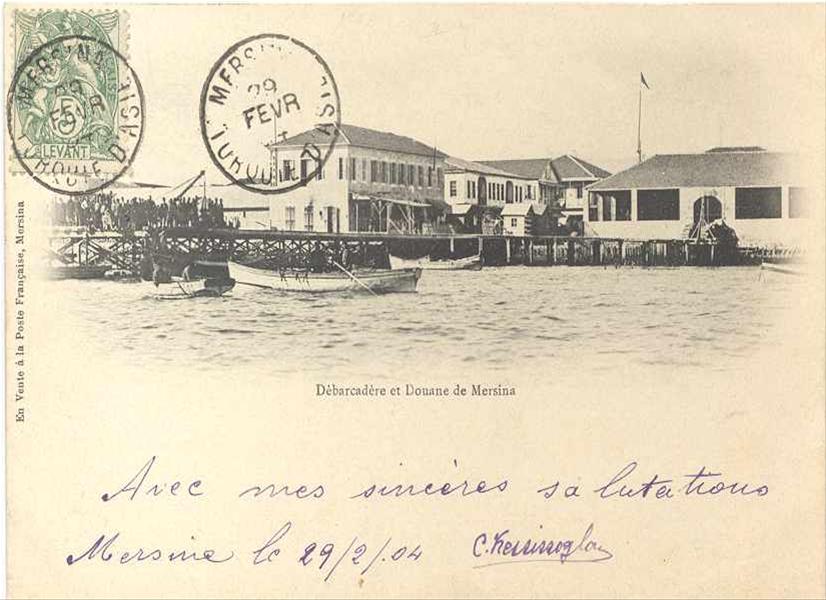 MERSINA
29
FEVR
04
TURQUIE D'ASIE
5
LEVANT
MERSINA
29
FEVR
TURQUIE D'ASIE
En Vente à la Poste Française, Mersina
Débarcadère et Douane de Mersina
Avec mes sincères salutations
Mersine le 29/2/04